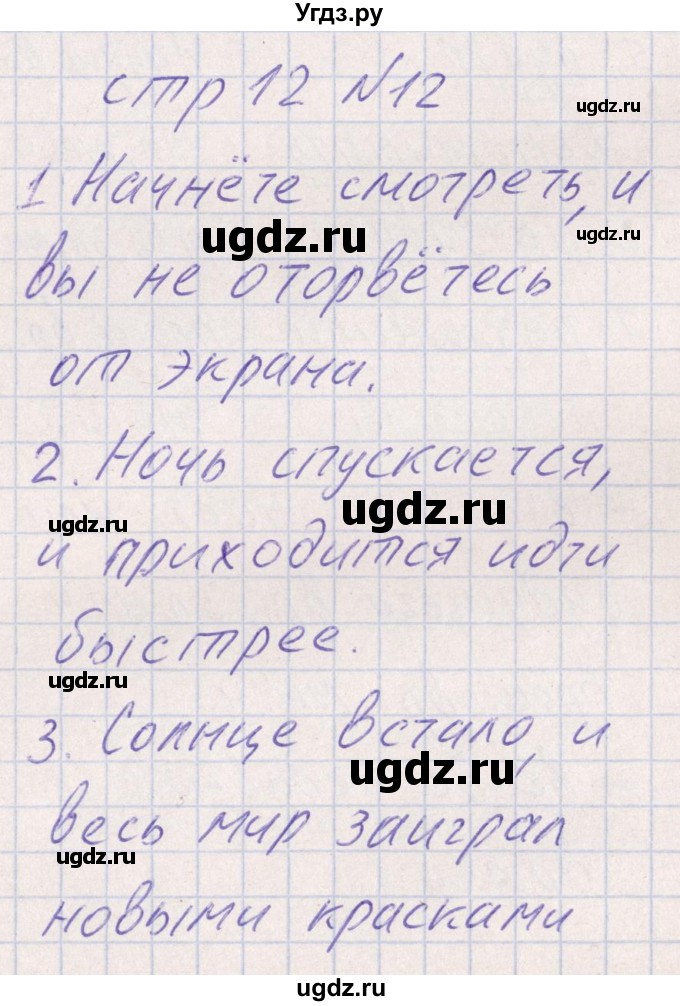 Угдз.ру
стр 12 №12
ugdz.ru
1 Начнёте смотреть, и
ugdz.ru
ugdz.ru
вы не оторвётесь
от экрана.
2. Ночь спускается,
ugdz.ru
ugdz.ru
и приходится идти
быстрее.
ugdz.ru
3. Солнце встало, и
ugdz.ru
весь мир заиграл
ugdz.ru
новыми красками
ugdz.ru